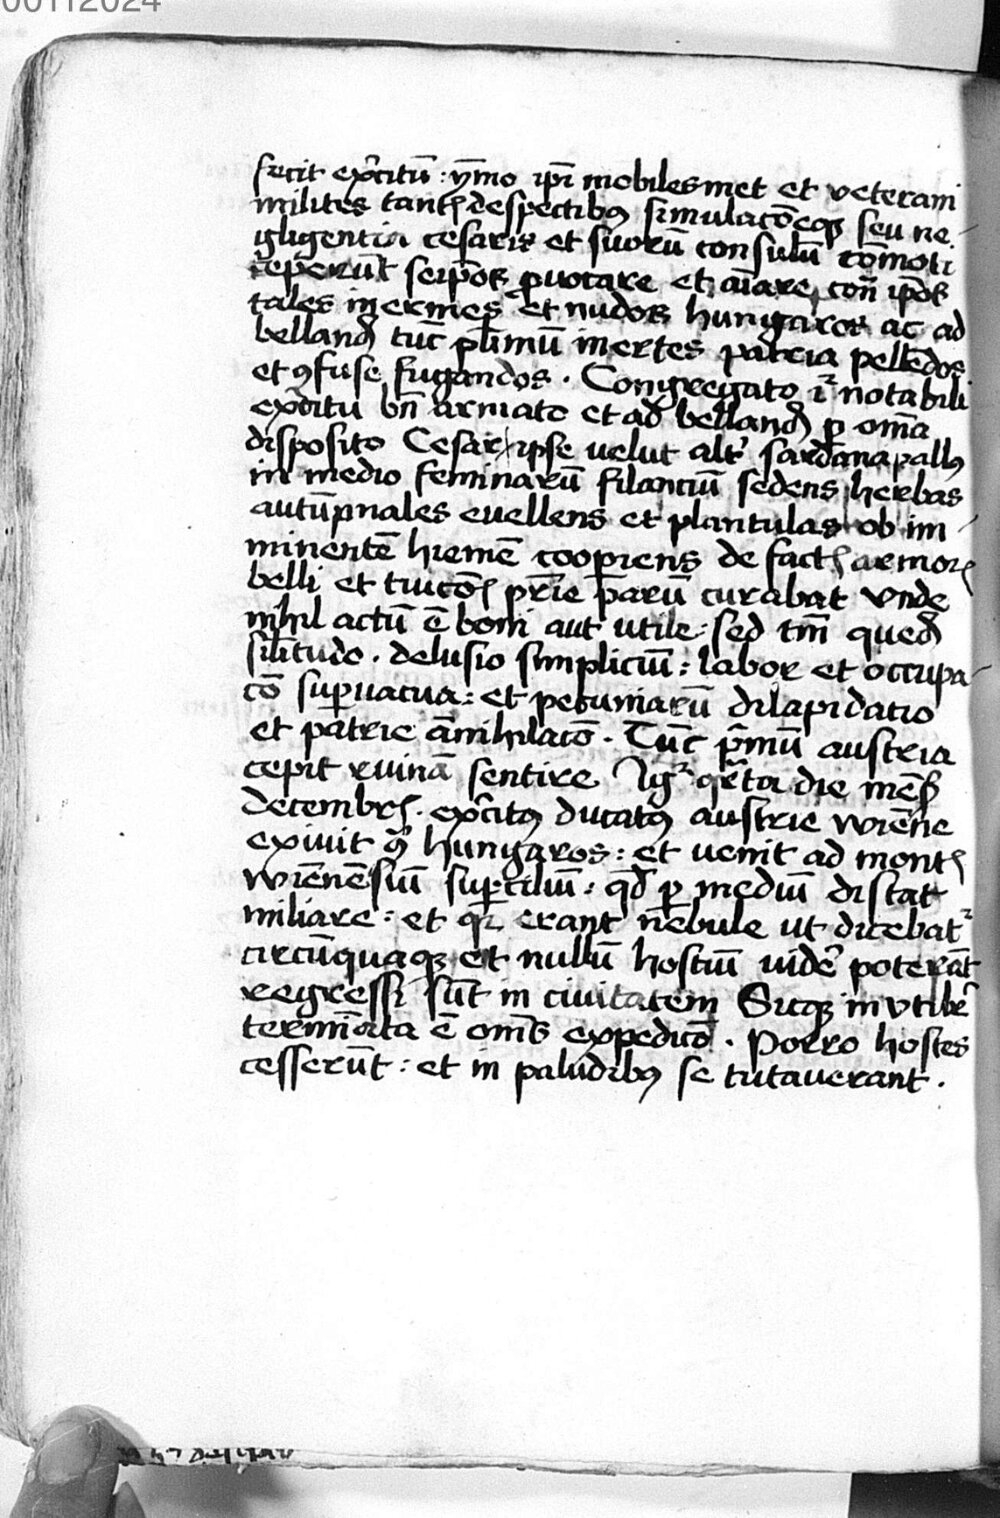 00112024
fecit exẽcitũ : ỹmo ip̃i mobiles met et veterani
milites tantis despectibus simulacõeq3 seu ne
gligentia cesaris et suorũ consulũ cõmoti
ceperũt seip̃os p̱uocare et aĩare cont̃ ip̃os
tales inermes et nudos hungaros ac ad
belland̃ tũc pl̃imũ inertes patria pellẽdos
et ꝯfuse fugandos . Congregato iḡ notabili
exẽcitu bñ armato et ad belland̃ ꝑ om̃a
disposito Cesar ipse velut alt̃ sardanapallus
in medio feminarũ filanciũ sedens herbas
autũpnales euellens et plantulas ob im
minentẽ hiemẽ cooꝑiens de factis armorꝝ
belli et tuicõis pr̃ie parũ curabat vnde
nihil actũ ẽ boni aut utile : sed tm̃ qued̃
sil̃itudo . delusio simpliciũ : labor et occupa
cõ suꝑuacua : et pecuniarũ dilapidatio
et patrie ãnihilacõ . Tũc pͥmũ austria
cepit ruinã sentire Igͥ qr̃ta die mẽs̃
decembrꝭ . exẽcitus ducatus austrie wiẽne
exiuit ꝯ̃ hungaros : et venit ad montꝭ
wiẽnẽsiũ suꝑciliũ : qd̃ ꝑ mediũ distat
miliare : et qͥ erant nebule ut dicebat᷑
circũquaq3 et nullũ hostiũ uidẽ poterãt
regressi sũt in ciuitatem Sicq3 inutibr̃
termĩata ẽ om̃s expedicõ . Porro hostes
cesserũt : et in paludibus se tutauerant .